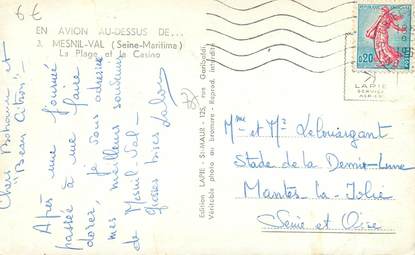 6€
EN AVION AU-DESSUS DE...
3. MESNIL-VAL (Seine-Maritime)
La Plage et le Casino
Chers Bonhomme et
"Beau Citron" -
Après une journée
passée à me faire
dorer, je vous adresse
mes meilleurs souvenirs
de Mesnil-Val -
Grosses bises
Edition LAPIE - St-MAUR - 125, rue Garibaldi
Véritable photo au bromure - Reprod. interdite
0,20
LAPIE
SERVICE
AERIEN
Mme et Mr
Stade de la Demie-Lune
Mantes la Jolie
Seine et Oise